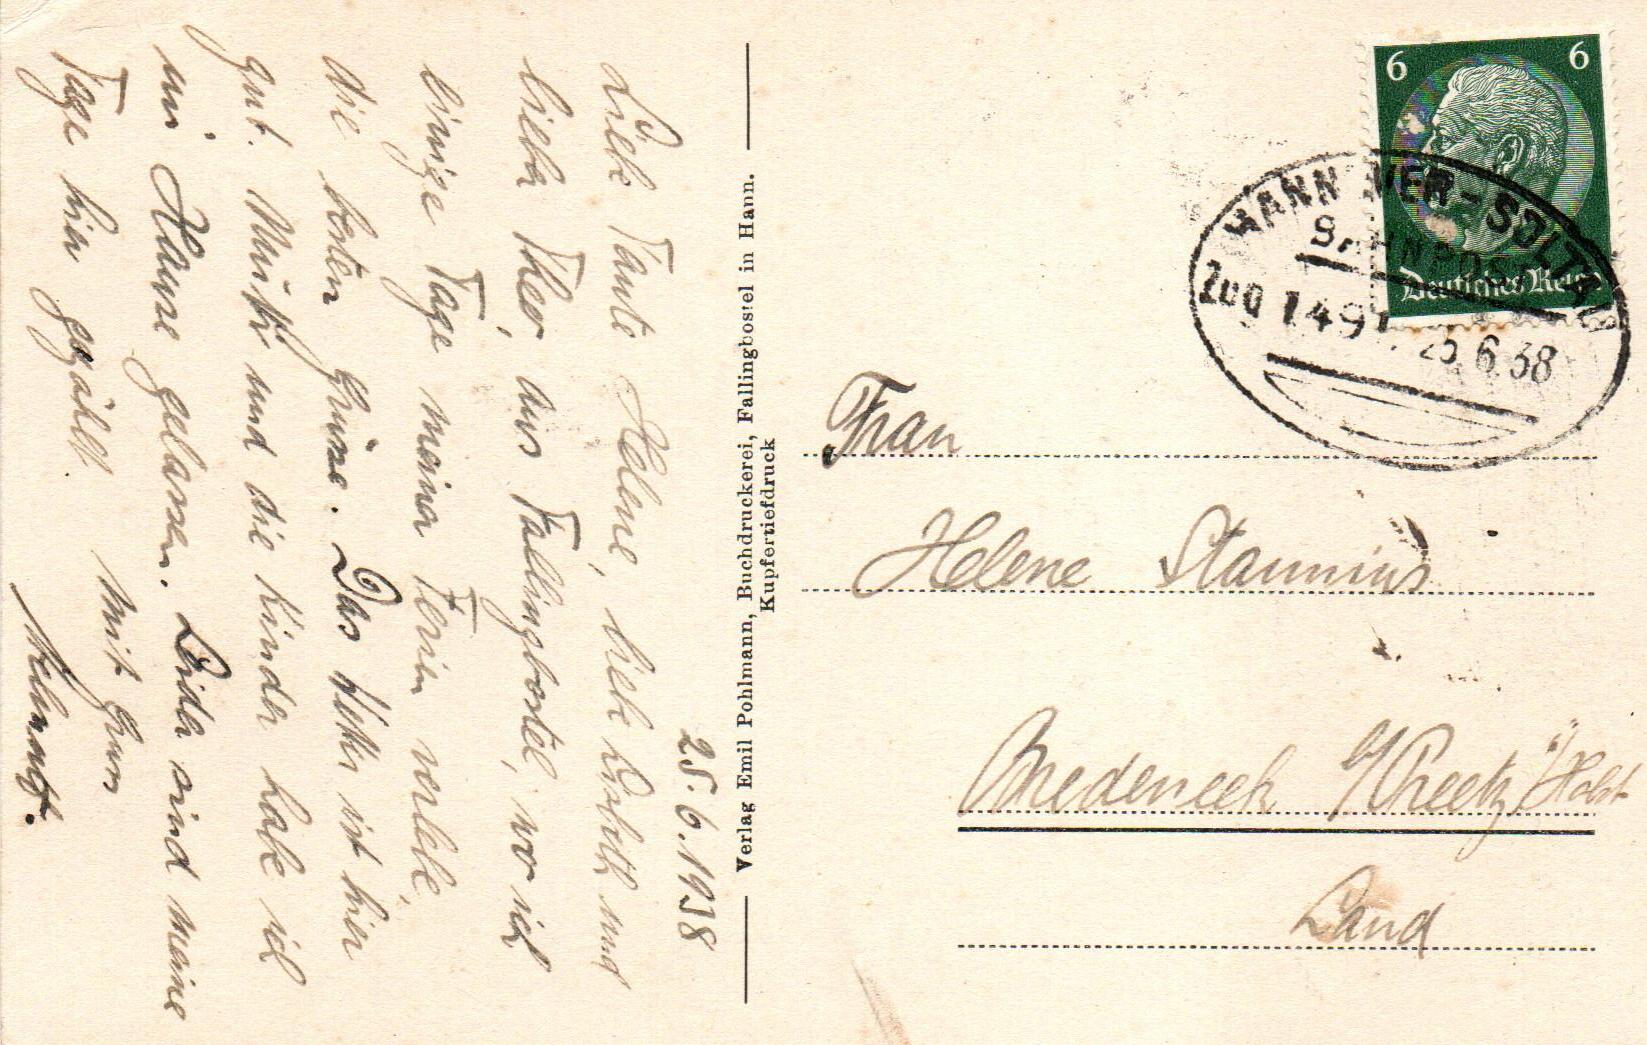 25.6.1938
Liebe Tante Helene, liebe Lisbeth und
lieber Theo, aus Fallingbostel, wo ich
einige Tage meiner Ferien verlebe,
die besten Grüsse. Das Wetter ist hier
gut. Mutti und die Kinder habe ich
zu Hause gelassen. Leider sind meine
Tage hier gezählt. Mit Gruss
Verlag Emil Pohlmann, Buchdruckerei, Fallingbostel in Hann.
Kupfertiefdruck
6 6
Deutsches Reich
HANNOVER-SOLTAU
BAHNPOST
ZUG 1491 25 6.38
Frau
Helene Stamnius
Bredeneek b/Preetz i/Holst
Land